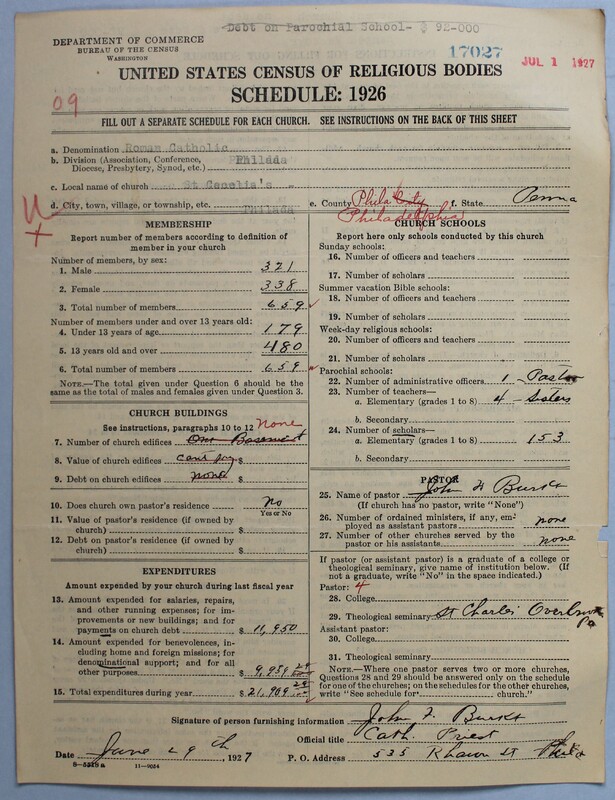 Debt on Parochial School- $ 92-000
DEPARTMENT OF COMMERCE
BUREAU OF THE CENSUS
WASHINGTON
17027
JUL 1 1927
UNITED STATES CENSUS OF RELIGIOUS BODIES
SCHEDULE: 1926
09
FILL OUT A SEPARATE SCHEDULE FOR EACH CHURCH. SEE INSTRUCTIONS ON THE BACK OF THIS SHEET
a. Denomination Roman Catholic
b. Division (Association, Conference, Diocese, Presbytery, Synod, etc.) Philada
c. Local name of church St Cecelia's
d. City, town, village, or township, etc. Philada
e. County Phila
Philadelphia
f. State Penna
MEMBERSHIP
Report number of members according to definition of member in your church
Number of members, by sex:
1. Male 321
2. Female 338
3. Total number of members 659
Number of members under and over 13 years old:
4. Under 13 years of age 179
5. 13 years old and over 480
6. Total number of members 659
NOTE.—The total given under Question 6 should be the same as the total of males and females given under Question 3.
CHURCH BUILDINGS
See instructions, paragraphs 10 to 12 None
7. Number of church edifices One Basement
8. Value of church edifices cant say $
9. Debt on church edifices none $
10. Does church own pastor's residence No
Yes or No
11. Value of pastor's residence (if owned by church) $
12. Debt on pastor's residence (if owned by church) $
EXPENDITURES
Amount expended by your church during last fiscal year
13. Amount expended for salaries, repairs, and other running expenses; for improvements or new buildings; and for payments on church debt $ 11,950
14. Amount expended for benevolences, including home and foreign missions; for denominational support; and for all other purposes $ 9,959 29
15. Total expenditures during year $ 21,909 29
CHURCH SCHOOLS
Report here only schools conducted by this church
Sunday schools:
16. Number of officers and teachers
17. Number of scholars
Summer vacation Bible schools:
18. Number of officers and teachers
19. Number of scholars
Week-day religious schools:
20. Number of officers and teachers
21. Number of scholars
Parochial schools:
22. Number of administrative officers 1 - Pastor
23. Number of teachers—
a. Elementary (grades 1 to 8) 4 - Sisters
b. Secondary
24. Number of scholars—
a. Elementary (grades 1 to 8) 153
b. Secondary
PASTOR
25. Name of pastor John F Burke
(If church has no pastor, write "None")
26. Number of ordained ministers, if any, employed as assistant pastors none
27. Number of other churches served by the pastor or his assistants none
If pastor (or assistant pastor) is a graduate of a college or theological seminary, give name of institution below. (If not a graduate, write "No" in the space indicated.)
Pastor: 4
28. College
29. Theological seminary St Charles Overbrook Pa
Assistant pastor:
30. College
31. Theological seminary
NOTE.—Where one pastor serves two or more churches, Questions 28 and 29 should be answered only on the schedule for one of the churches; on the schedules for the other churches, write "See schedule for church."
Signature of person furnishing information John F. Burke
Official title Cath. Priest
Date June 29th, 1927
P. O. Address 535 Rhawn St Phila
8—5318a 11—9034